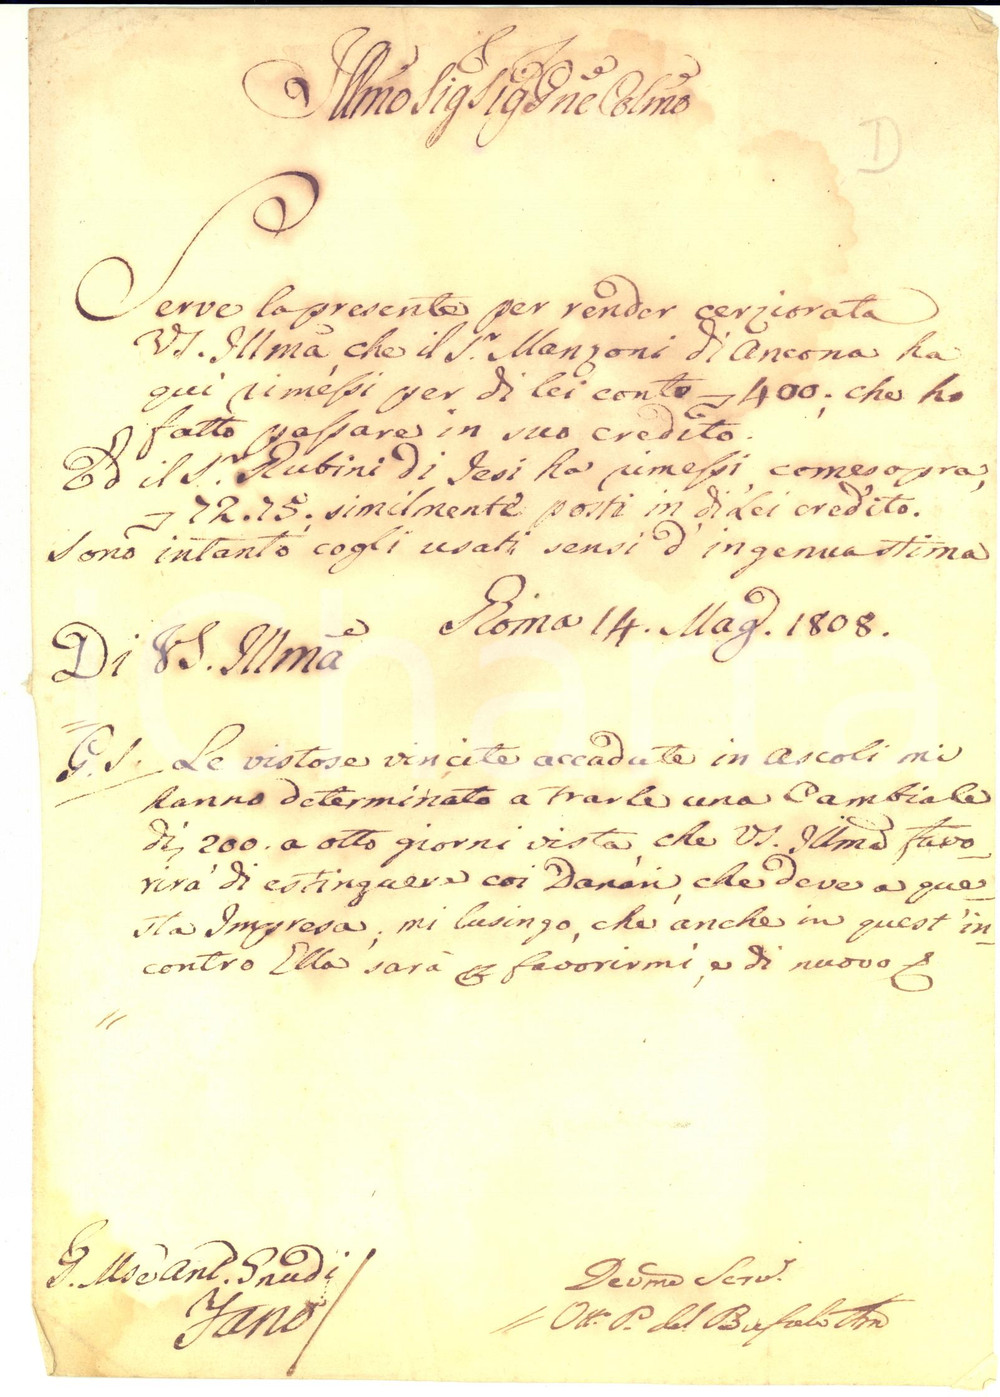 Illmo Sig Sig Pne Colmo
D
Serve la presente per render cerziorata
VS. Illma che il Sr. Manzoni di Ancona ha
qui rimessi per di lei conto 400; che ho
fatto passare in suo credito.
Ed il Sr. Rubini di Jesi ha rimessi, come sopra,
72.75; similmente posti in di Lei credito.
Sono intanto cogli usati sensi d'ingenua stima
Roma 14. Mag. 1808.
Di VS. Illma
Le vistose vincite accadute in Ascoli mi
hanno determinato a trarle una Cambiale
di 200. a otto giorni vista, che VS. Illma favo-
rirà di estinguere coi Danari, che deve a que-
sta Impresa; mi lusingo, che anche in quest'in-
contro Ella sarà favorirmi, e di nuovo
Ant. Gnudi
Fano
Devmo Serv.
del Bufalo